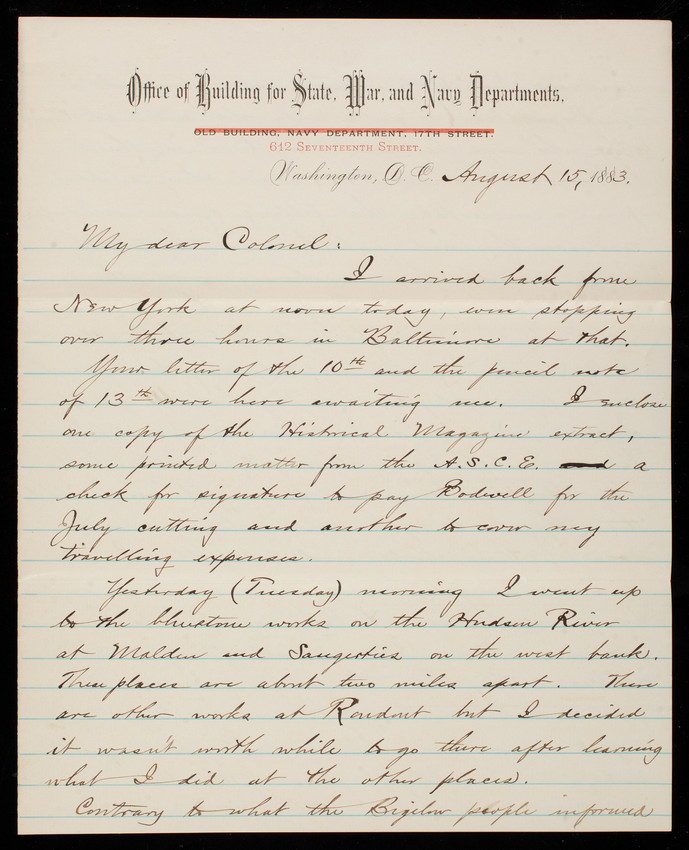 Office of Building for State, War, and Navy Departments.
OLD BUILDING, NAVY DEPARTMENT, 17TH STREET.
612 SEVENTEENTH STREET.
Washington, D. C. August 15, 1883.
My dear Colonel:
I arrived back from
New York at noon today, even stopping
over three hours in Baltimore at that.
Your letter of the 10th and the pencil note
of 13th were here awaiting me. I enclose
one copy of the Historical Magazine extract,
some printed matter from the A.S.C.E. and a
check for signature to pay Bodwell for the
July cutting and another to cover my
travelling expenses.
Yesterday (Tuesday) morning I went up
to the bluestone works on the Hudson River
at Malden and Saugerties on the west bank.
These places are about two miles apart. There
are other works at Rondout but I decided
it wasn't worth while to go there after learning
what I did at the other places.
Contrary to what the Bigelow people informed